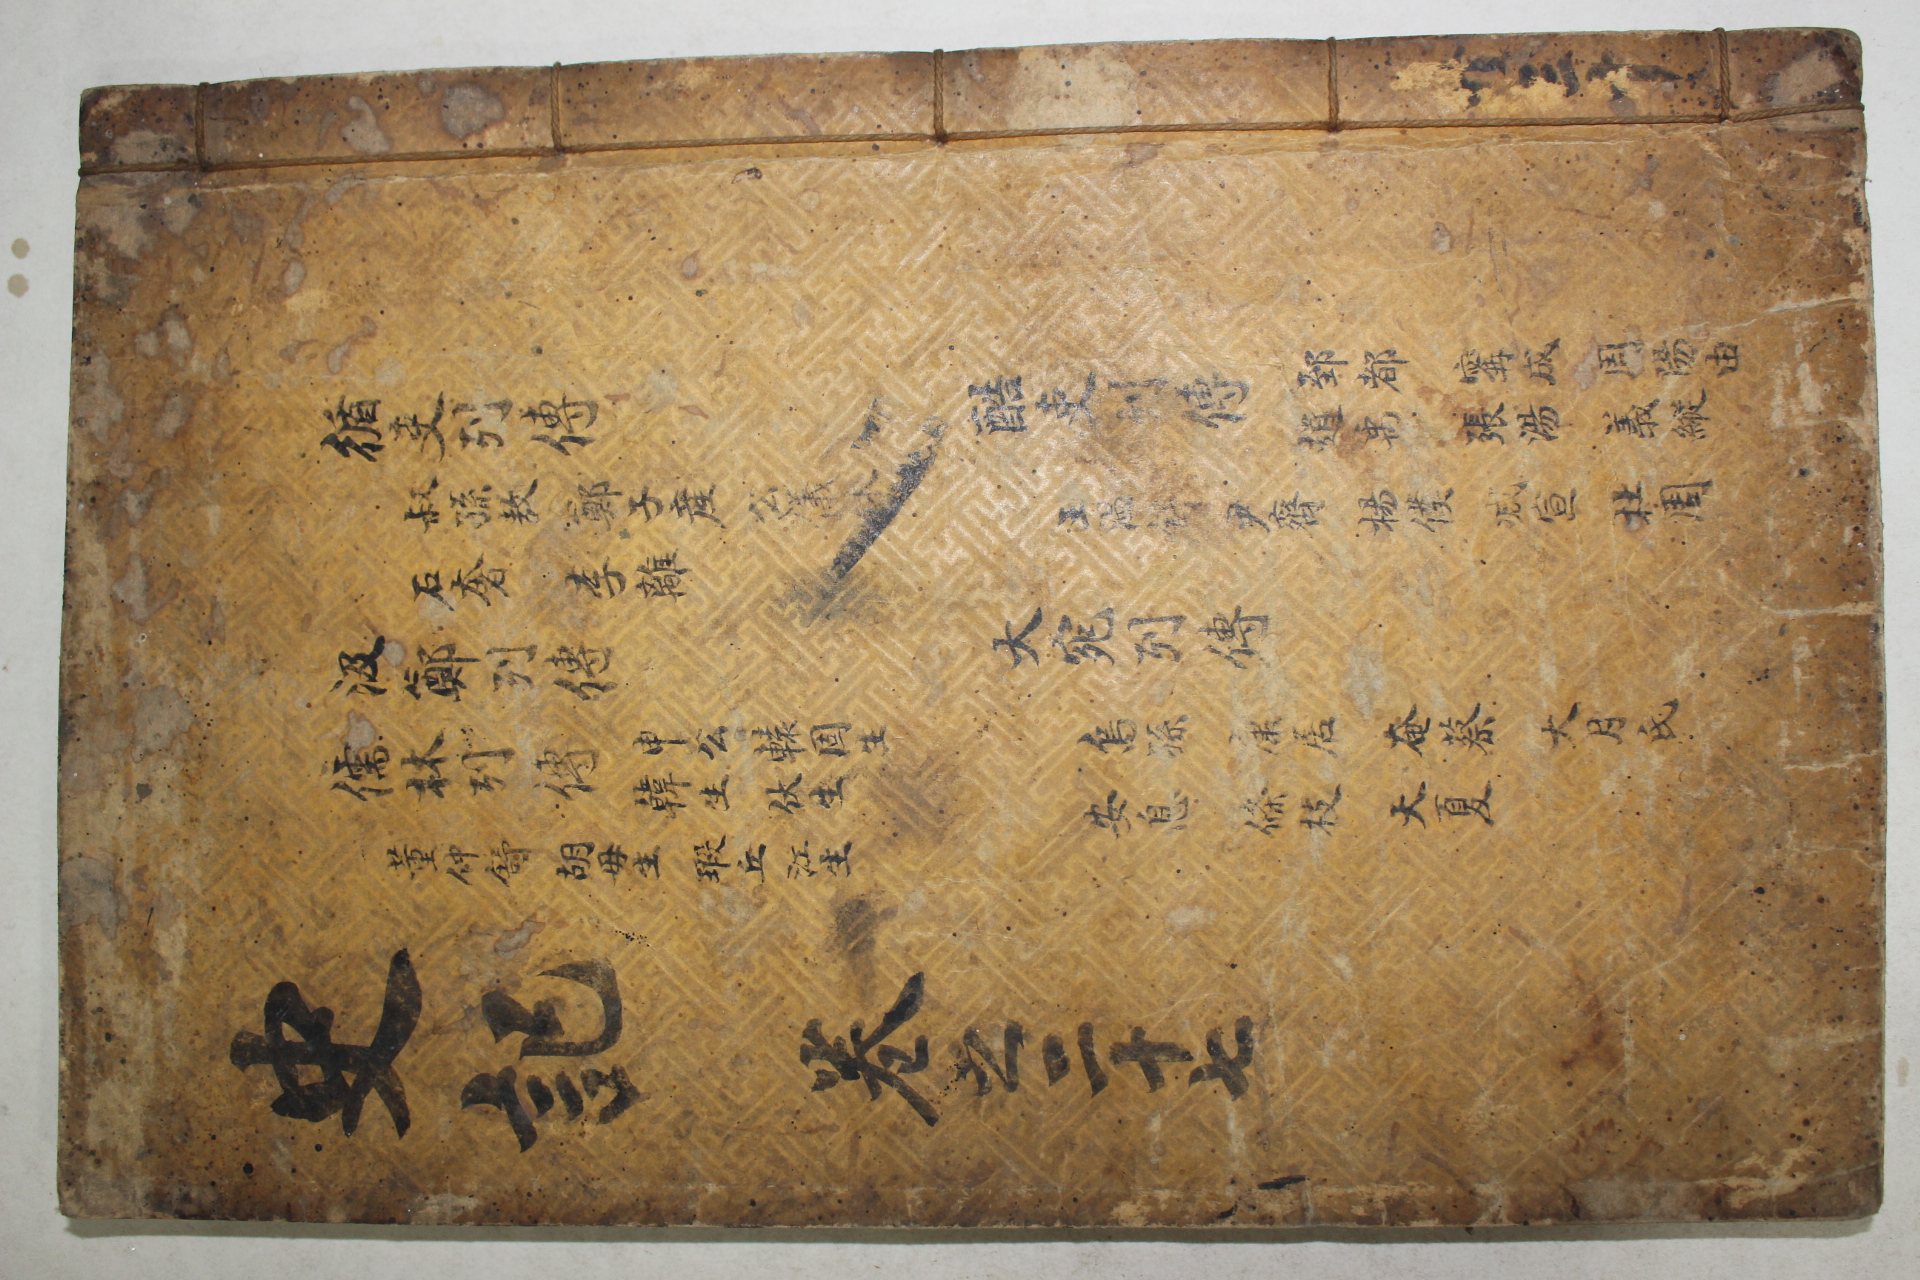 循吏列傳
叔孫敖 鄭子產 公儀
石奢 李離
汲鄭列傳
儒林列傳 申公 轅固生
韓生 伏生
董仲舒 胡毋生 瑕丘 江生
酷吏列傳 郅都 寧成 周陽由
趙禹 張湯 義縱
王溫舒 尹齊 楊僕 減宣 杜周
大宛列傳
烏孫 康居 奄蔡 大月氏
安息 條枝 大夏
史記 卷之二十七